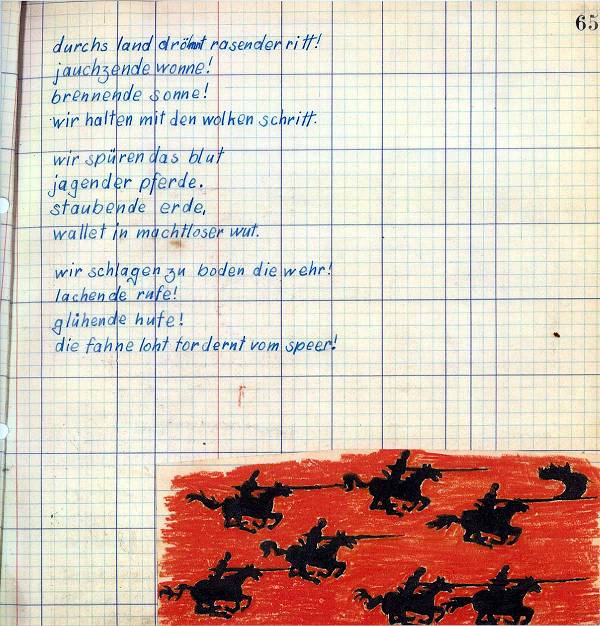 65
durchs land dröhnt rasender ritt!
jauchzende wonne!
brennende sonne!
wir halten mit den wolken schritt.
wir spüren das blut
jagender pferde.
staubende erde,
wallet in machtloser wut.
wir schlagen zu boden die wehr!
lachende rufe!
glühende hufe!
die fahne loht fordernt vom speer!